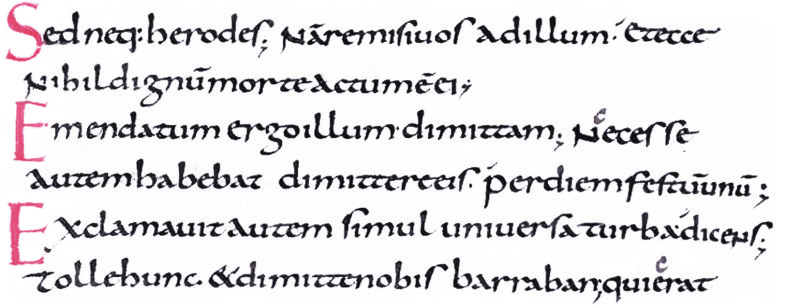 Sed neq: herodes; Nā remisi uos ad illum. et ecce
Nihil dignū morte actum ē ei;
Emendatum ergo illum dimittam; Necesse
autem habebat dimittere eis. per diem festū unū;
Exclamauit autem simul uniuersa turba dicens;
Tolle hunc. & dimitte nobis barraban; qui erat